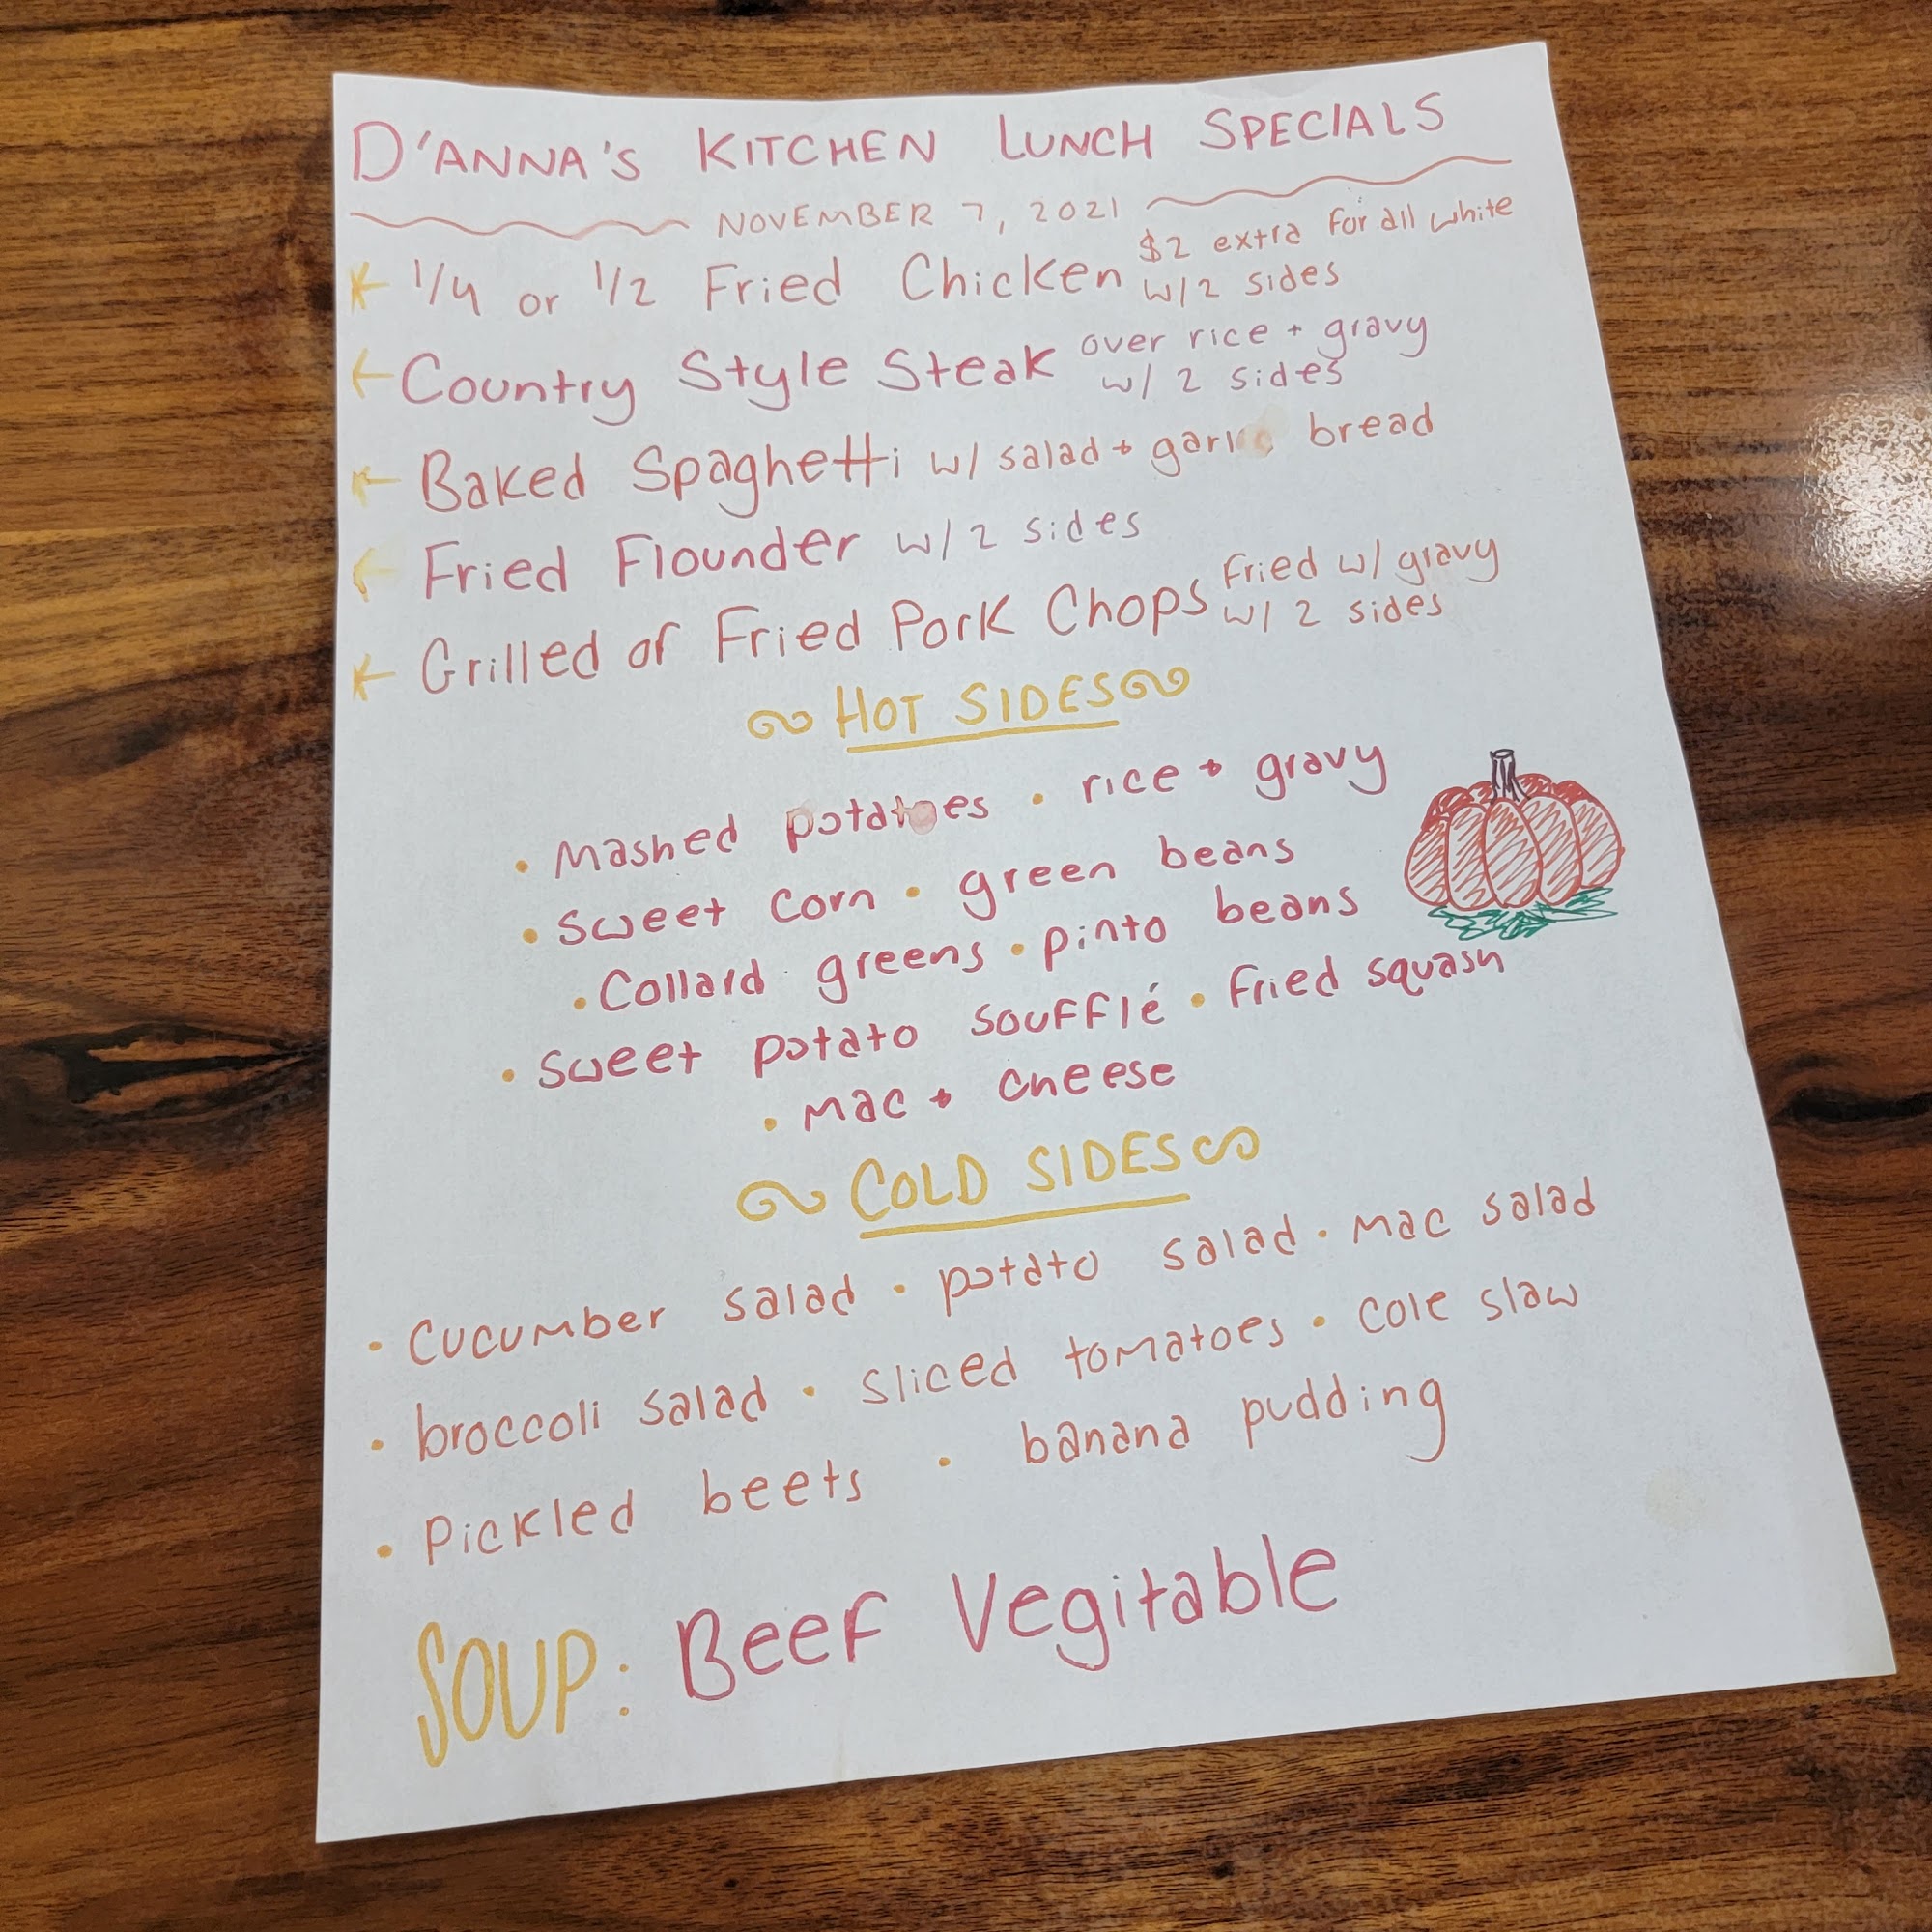 D'ANNA'S KITCHEN LUNCH SPECIALS
NOVEMBER 7, 2021
1/4 or 1/2 Fried Chicken $2 extra for all white
w/2 sides
Country Style Steak over rice + gravy
w/ 2 sides
Baked Spaghetti w/ salad + garlic bread
Fried Flounder w/ 2 sides
Grilled or Fried Pork Chops Fried w/ gravy
w/ 2 sides
HOT SIDES
• Mashed potatoes • rice + gravy
• sweet corn • green beans
• Collard greens • pinto beans
• sweet potato soufflé • fried squash
• mac + cheese
COLD SIDES
• cucumber salad • potato salad • mac salad
• broccoli salad • sliced tomatoes • cole slaw
• Pickled beets • banana pudding
SOUP: Beef Vegitable